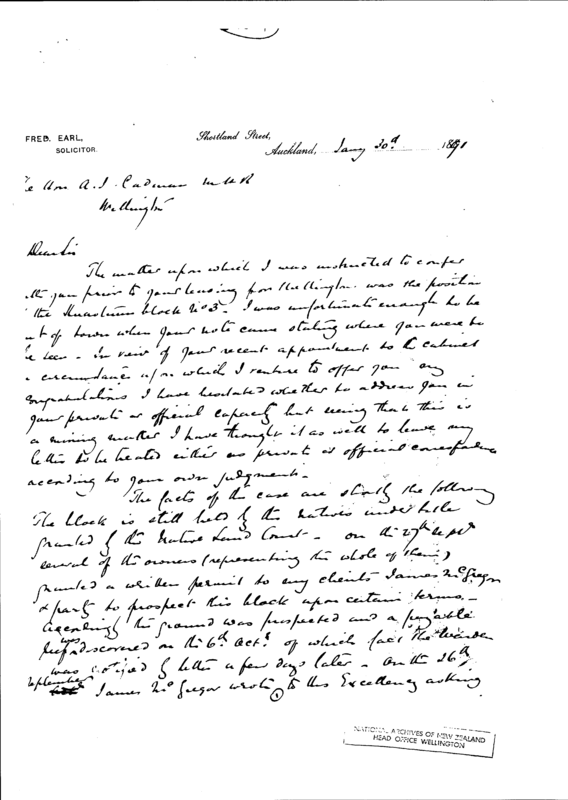 FRED. EARL,
SOLICITOR.
Shortland Street,
Auckland, Jany 30th 1891
Hon A. J. Cadman M H R
Wellington
Dear Sir
The matter upon which I was instructed to confer
you prior to your leaving for Wellington was the position
the block No 3. I was unfortunate enough to be
of town when your note came stating where you were to
be seen - In view of your recent appointment to the cabinet
a circumstance upon which I venture to offer you my
congratulations I have hesitated whether to address you in
your private or official capacity but seeing that this is
a mining matter I have thought it as well to leave my
letter to be treated either as private or official correspondence
according to your own judgment.
The facts of the case are shortly the following
The block is still held by the Natives under title
granted by the Native Land Court - on the 27th Sept
several of the owners (representing the whole of them)
granted a written permit to my clients James McGregor
& party to prospect this block upon certain terms -
Accordingly the ground was prospected and a payable
reef was discovered on the 6th Octr of which fact the Warden
was notified by letter a few days later - On the 26th
September James McGregor wrote to His Excellency asking
NATIONAL ARCHIVES OF NEW ZEALAND
HEAD OFFICE WELLINGTON